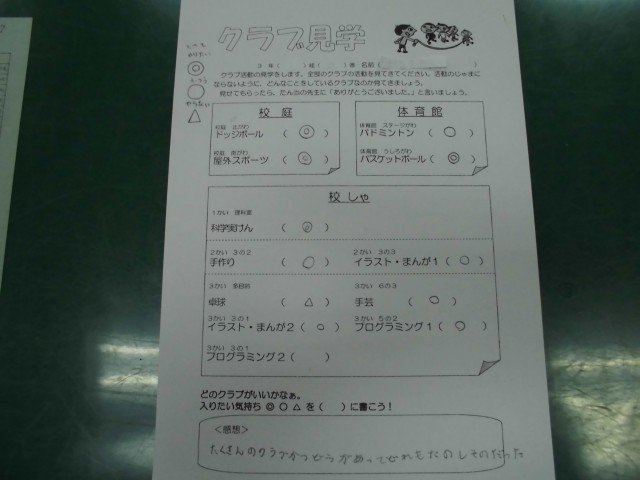 クラブ見学
とても
やりたい
◎
ふつう
○
やらない
△
3年( )組( )番 名前( )
クラブ活動の見学をします。全部のクラブの活動を見てきてください。活動のじゃまに
ならないように、どんなことをしているクラブなのか見てきましょう。
見せてもらったら、たんとうの先生に「ありがとうございました。」と言いましょう。
校 庭
校庭 北がわ
ドッジボール ( ◎ )
校庭 南がわ
屋外スポーツ ( ◎ )
体育館
体育館 ステージがわ
バドミントン ( ○ )
体育館 うしろがわ
バスケットボール( ◎ )
校しゃ
1かい 理科室
科学実けん ( ◎ )
2かい 3の2
手作り ( ○ )
2かい 3の3
イラスト・まんが1( ○ )
3かい 多目的
卓球 ( △ )
3かい 6の3
手芸 ( ○ )
3かい 3の1
イラスト・まんが2( ○ )
3かい 5の2
プログラミング1( ○ )
3かい 3の1
プログラミング2( )
どのクラブがいいかなぁ。
入りたい気持ち ◎ ○ △ を( )に書こう!
<感想>
たくさんのクラブかつどうがあってどれもたのしそうだった